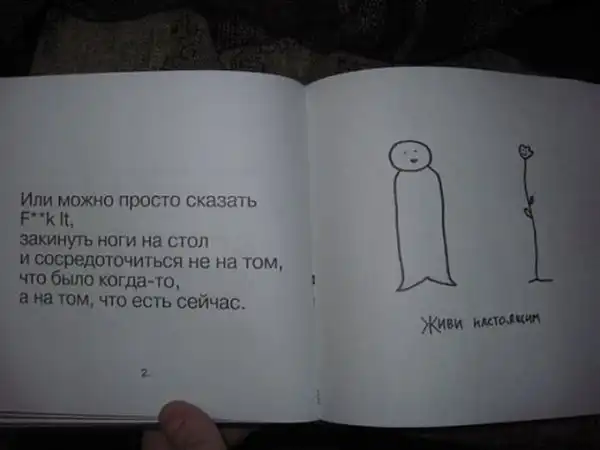 Или можно просто сказать
F**k It,
закинуть ноги на стол
и сосредоточиться не на том,
что было когда-то,
а на том, что есть сейчас.
2
Живи настоящим